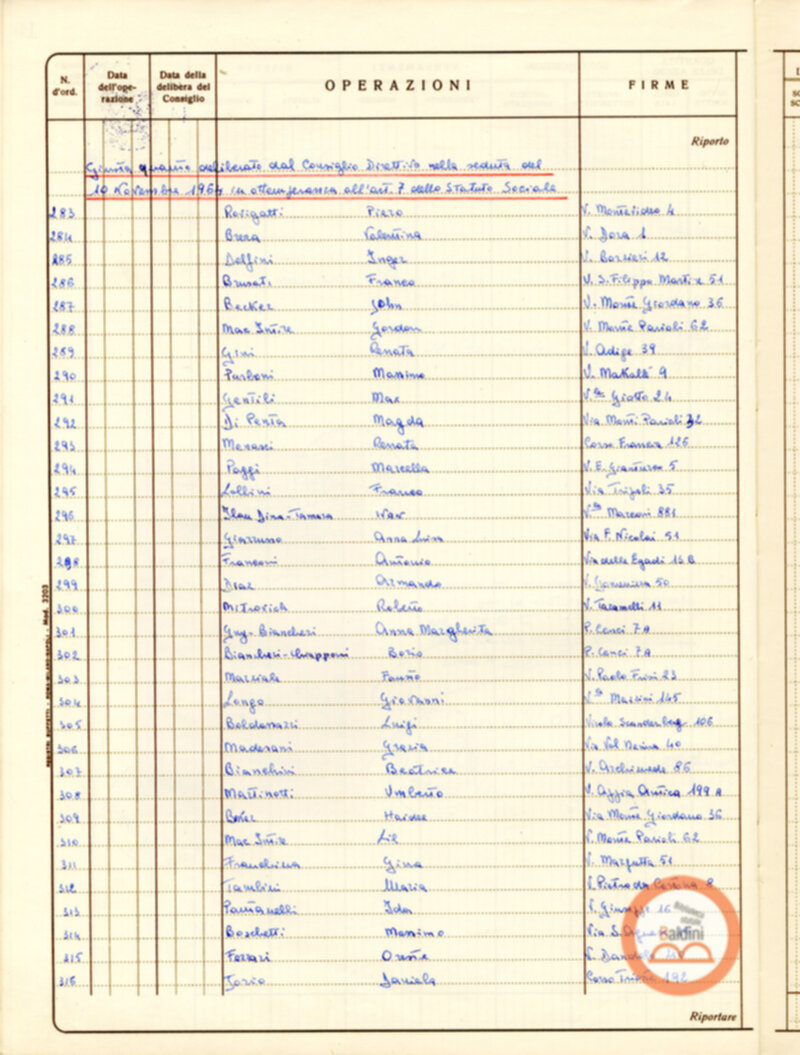 N. d'ord. Data dell'ope- razione Data della delibera del Consiglio OPERAZIONI FIRME
Riporto
Giusta quanto deliberato dal Consiglio Direttivo nella seduta del
10 Novembre 1964 in ottemperanza all'art. 7 dello Statuto Sociale
283 Rovigatti Piero V. Montevideo 4
284 Brera Valentina V. Dora 1
285 Delfini Inger V. Borsieri 12
286 Brusati Franco V. S. Filippo Martire 51
287 Becker John V. Monte Giordano 36
288 Mac Intire Gordon V. Monte Parioli 62
289 Gini Renata V. Adige 39
290 Parboni Massimo V. Makallè 9
291 Gentili Max V.le Giotto 24
292 Di Penta Magda Via Monti Parioli 32
293 Renata Corso Francia 126
294 Poggi Marcella V. E. Gianturco 5
295 Lollini Franco Via Tripoli 35
296 V.le Marconi 881
297 Anna Luisa Via F. Nicolai 51
298 Franconi Antonio Via delle Egadi 13 B
299 Diaz Armando 50
300 Mitrovich Roberto V. Taramelli 11
301 Biancheri Anna Margherita P. Cenci 7A
302 Biancheri-Chiapponi Boris P. Cenci 7A
303 Marziale Fausto V. Paolo Frisi 23
304 Longo Giovanni V.le Mazzini 145
305 Luigi 106
306 Madesani Grazia Via Val Nerina 40
307 Bianchini Beatrice V. Archimede 86
308 Martinotti Umberto V. Appia Antica 199 A
309 Haidee Via Monte Giordano 36
310 Mac Intire Lil V. Monte Parioli 62
311 Franchina Gina V. Margutta 51
312 Tambini Maria V. Pietro da Cortona 8
313 Pantanelli Ida 16
314 Boschetti Massimo Via S.
315 Ferrari Oreste V. Dandolo
316 Iorio Daniela Corso Trieste 192
Riportare
Biblioteca statale
Baldini